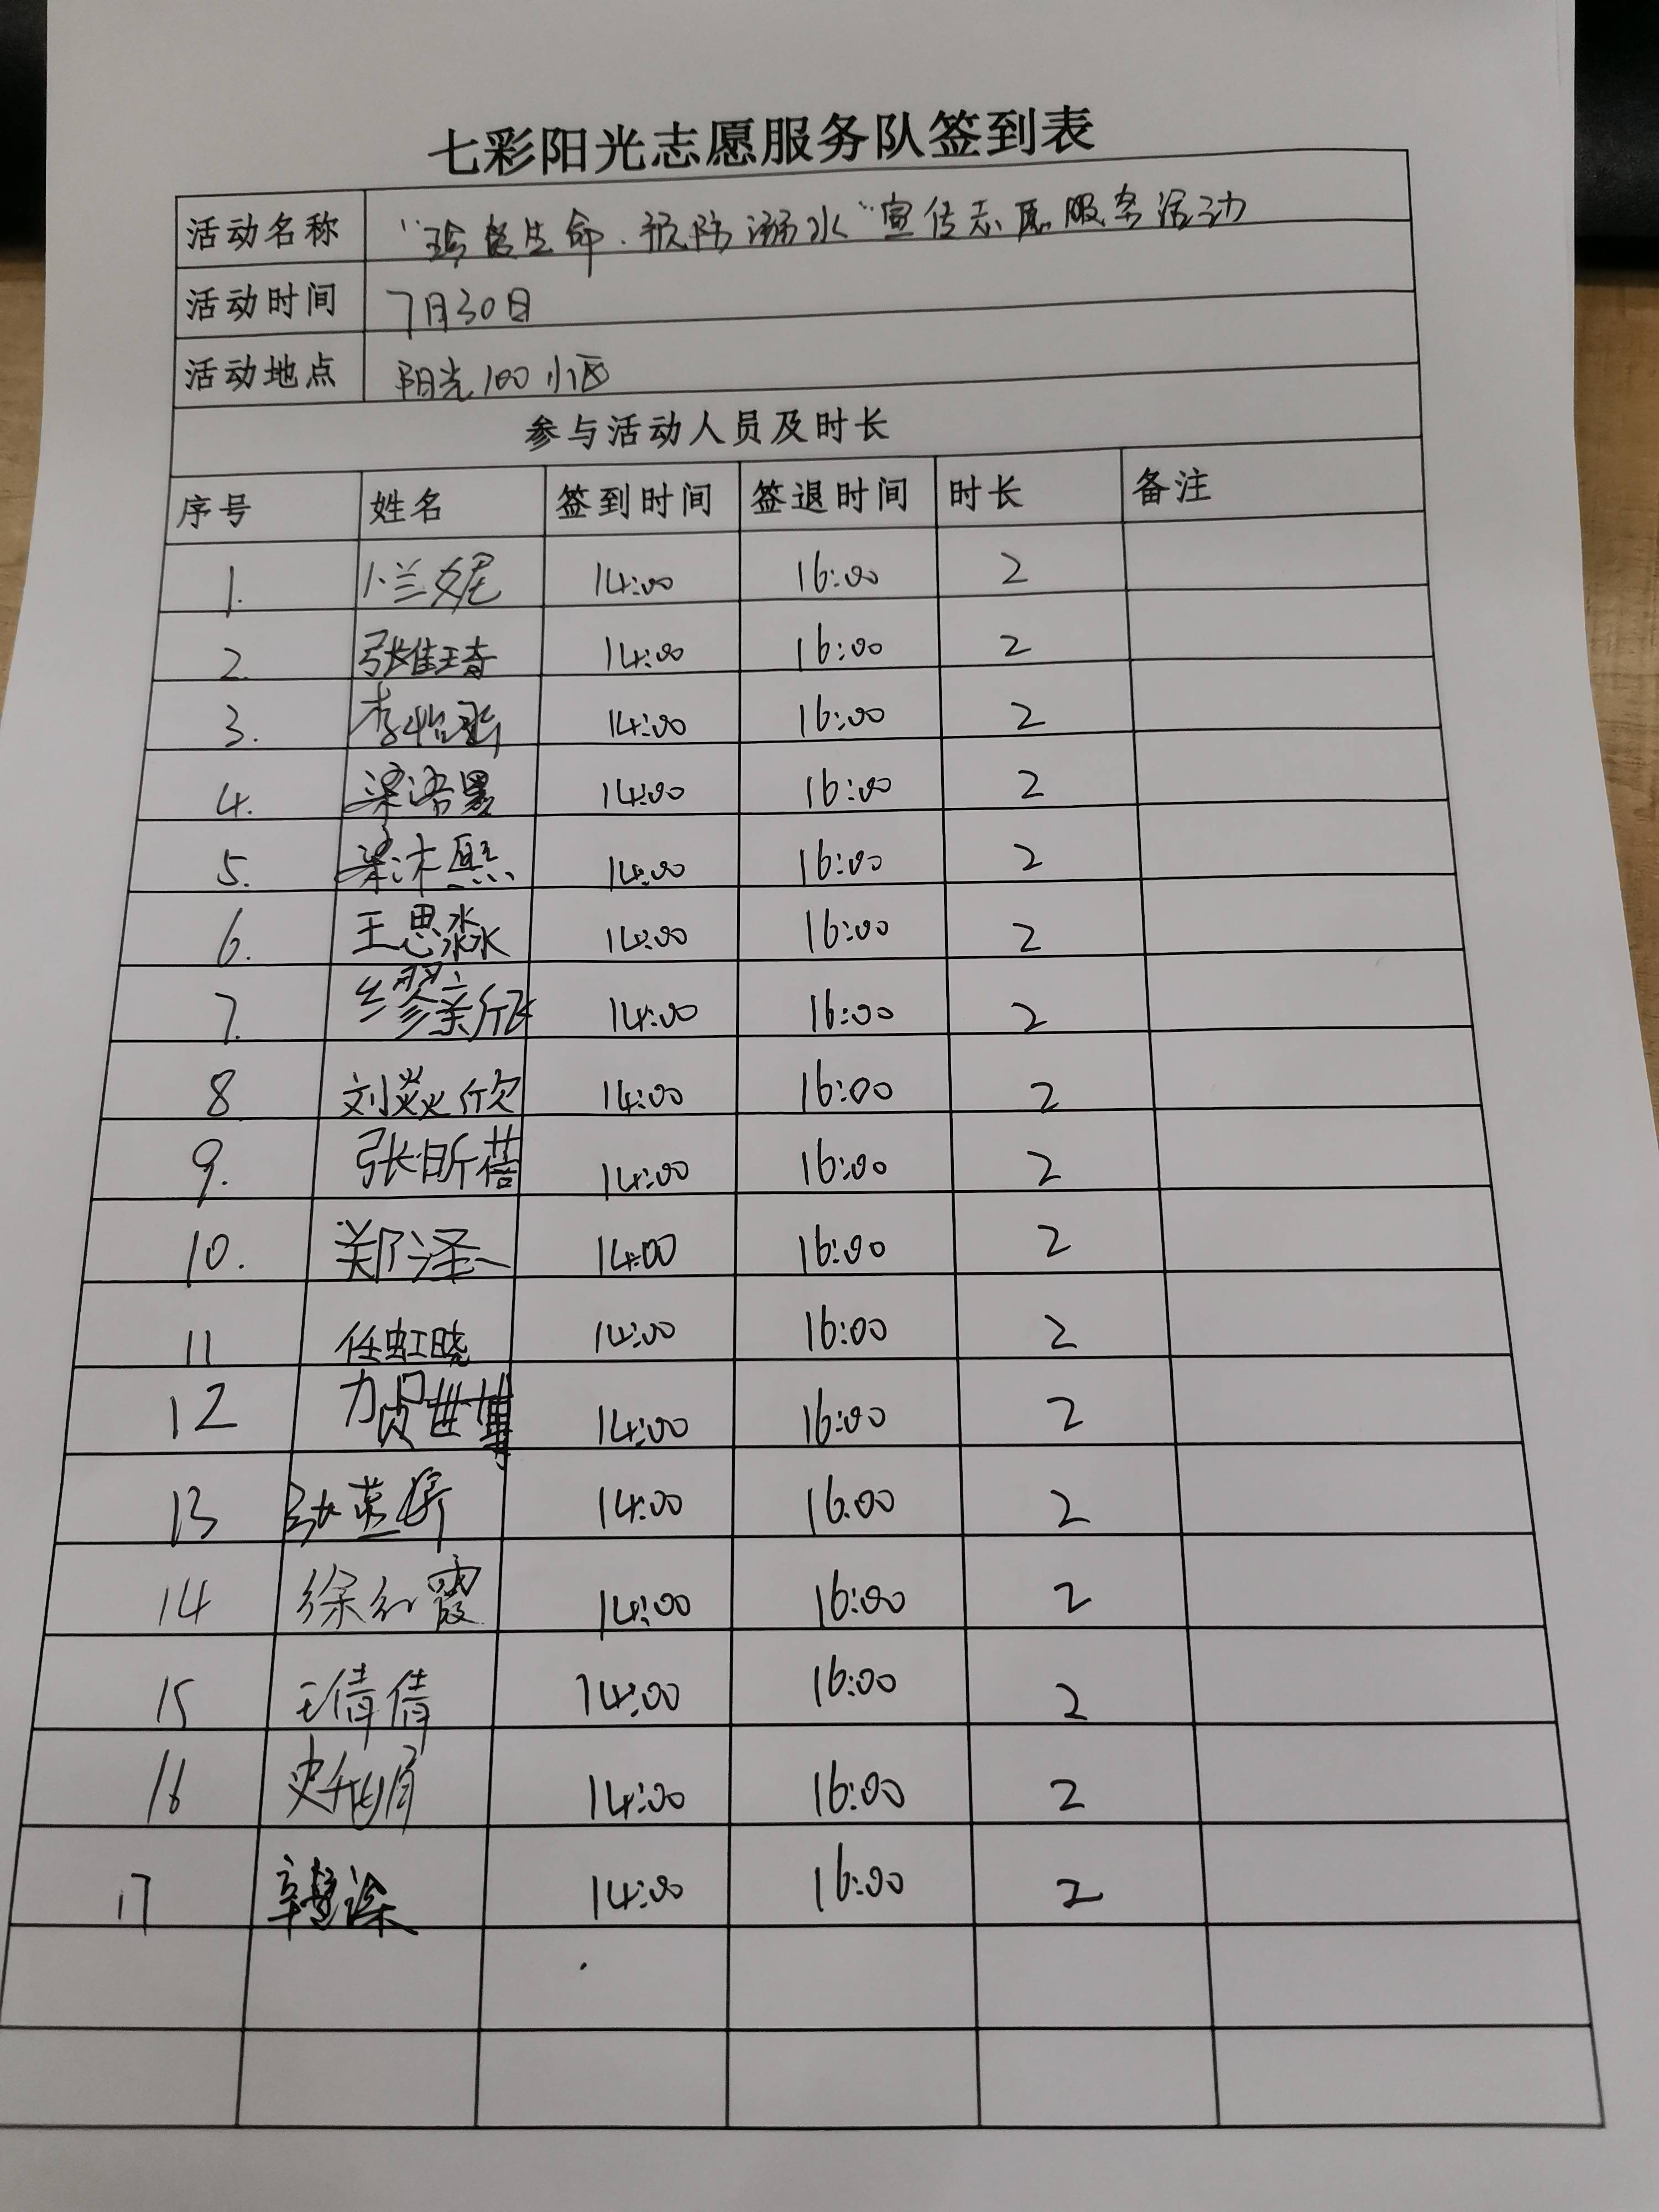 七彩阳光志愿服务队签到表
活动名称 "珍惜生命.预防溺水"宣传志愿服务活动
活动时间 7月30日
活动地点 阳光100小区
参与活动人员及时长
序号 姓名 签到时间 签退时间 时长 备注
1. 卜兰妮 14:00 16:00 2
2. 张佳琦 14:00 16:00 2
3. 李怡 14:00 16:00 2
4. 梁洛墨 14:00 16:00 2
5. 梁沐熙 14:00 16:00 2
6. 王思淼 14:00 16:00 2
7. 缪新欣 14:00 16:00 2
8 刘焱欣 14:00 16:00 2
9. 张昕蓓 14:00 16:00 2
10. 郑泽一 14:00 16:00 2
11 任虹晓 14:00 16:00 2
12 贺世博 14:00 16:00 2
13 张英娇 14:00 16:00 2
14 徐红霞 14:00 16:00 2
15 王倩倩 14:00 16:00 2
16 史 14:00 16:00 2
17 辛 14:00 16:00 2